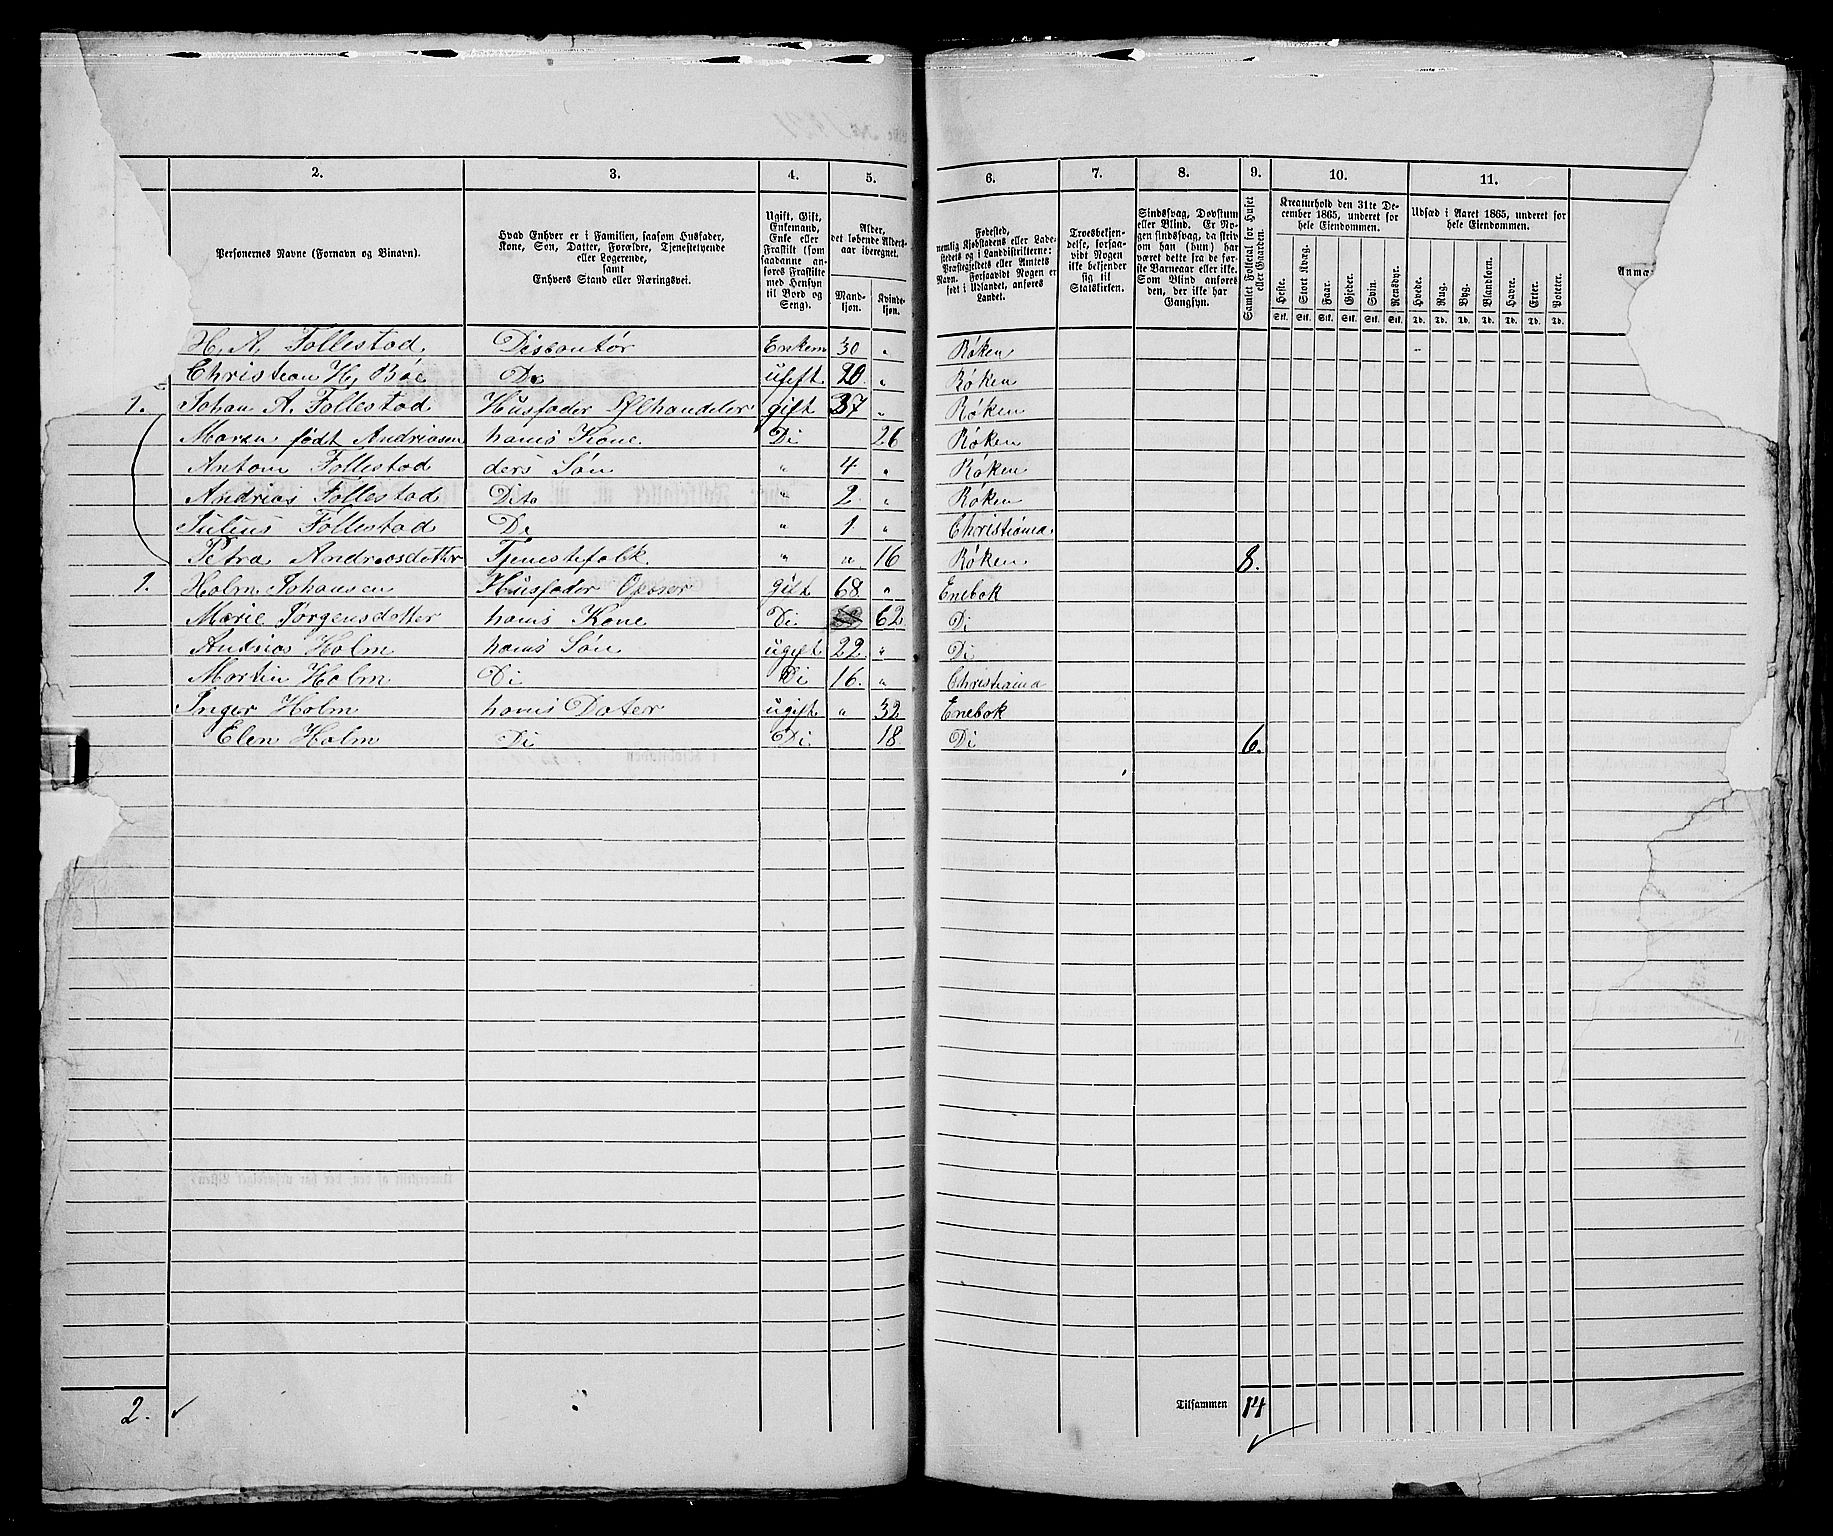 2. 3. 4. 5. 6. 7. 8. 9. 10. 11.
Personernes Navne (Fornavn og Vinavn).
Hvad Enhver er i Familien, saasom Husfader,
Kone, Søn, Datter, Forældre, Tjenestetyende
eller Logerende,
samt
Enhvers Stand eller Næringsvei.
Ugift, Gift,
Enkemand,
Enke eller
Fraskilt (som
saadanne an-
føres Fraskilte
med Hensyn
til Bord og
Seng).
Alder,
det løbende Alders-
aar iberegnet.
Mand-
kjøn.
Kvinde-
kjøn.
Fødested,
nemlig Kjøbstadens eller Lade-
stedets og i Landdistrikterne:
Præstegjeldets eller Amtets
Navn. Forsaavidt Nogen er
født i Udlandet, anføres
Landet.
Troesbekjen-
delse, forsaa-
vidt Nogen
ikke bekjender
sig til
Statskirken.
Sindssvag, Døvstum
eller Blind. Er No-
gen sindssvag, da skriv
om han (hun) har
været dette fra de før-
ste Barneaar eller ikke.
Som Blind anføres
den, der ikke har
Gangsyn.
Samlet Folketal for Huset
eller Gaarden.
Kreaturhold den 31te De-
cember 1865, underet for
hele Eiendommen.
Heste. Stort Kvæg. Faar. Gjeder. Svin. Rensdyr.
Stk. Stk. Stk. Stk. Stk. Stk.
Udsæd i Aaret 1865, underet for
hele Eiendommen.
Hvede. Rug. Byg. Blandkorn. Havre. Erter. Poteter.
Td. Td. Td. Td. Td. Td. Td.
Anmæ
H. A. Follestad. Discontør Enkem 30 " Røken
Christian H. Bøe Do ugift 20. " Røken
1. Johan A. Follestad Husfader Ølhandeler gift 37 " Røken
Maren født Andriasen hans Kone. Di 26 Røken
Anton Follestad ders Søn " 4 " Røken
Andrias Follestad Dito " 2. " Røken
Julius Follestad Di " 1 " Christiania
Petra Andreasdetter Tjenestefolk " " 16 Røken 8.
1. Holm Johansen Husfader gift 68. " Enebok
Marie Jørgensdotter hans Kone Di 62 Di
Andrias Holm hans Søn ugift 22. " Di
Martin Holm Di Di 16. " Christiania
Inger Holm hans Dater ugift " 32 Enebok
Elen Holm Di Di 18. Di 6.
2. Tilsammen 14